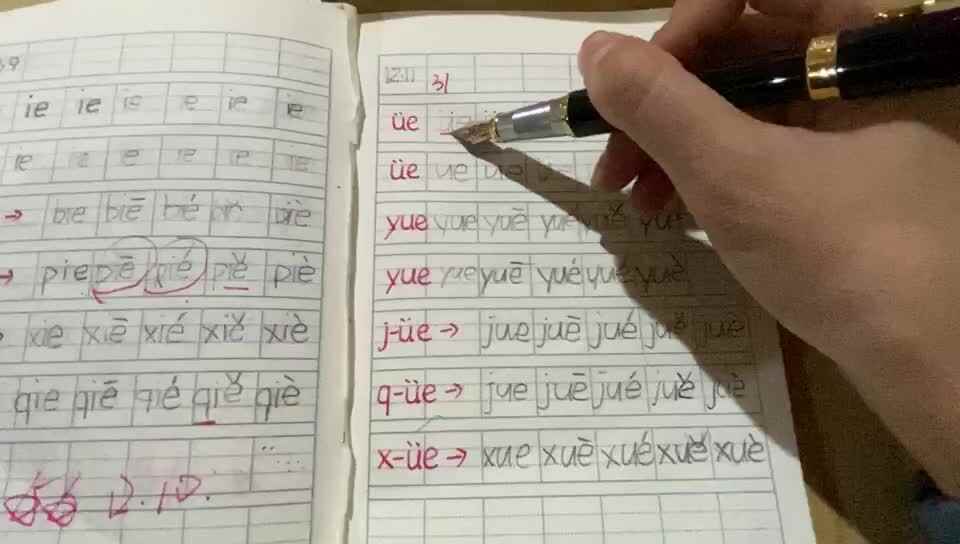 ie ie ie e ie ie
ie e e ie e ie
→ bie biē bié biè
→ pie piē pié piě piè
xie xiē xié xiě xiè
qie qiē qié qiě qiè
12.10.
12.11 31
üe
üe ue üe
yue yue yuē yué yuě yue
yue yue yuē yué yué yuè
j-üe → jue juē jué juě jue
q-üe → jue juē jué juě juè
x-üe → xue xuē xué xuě xuè